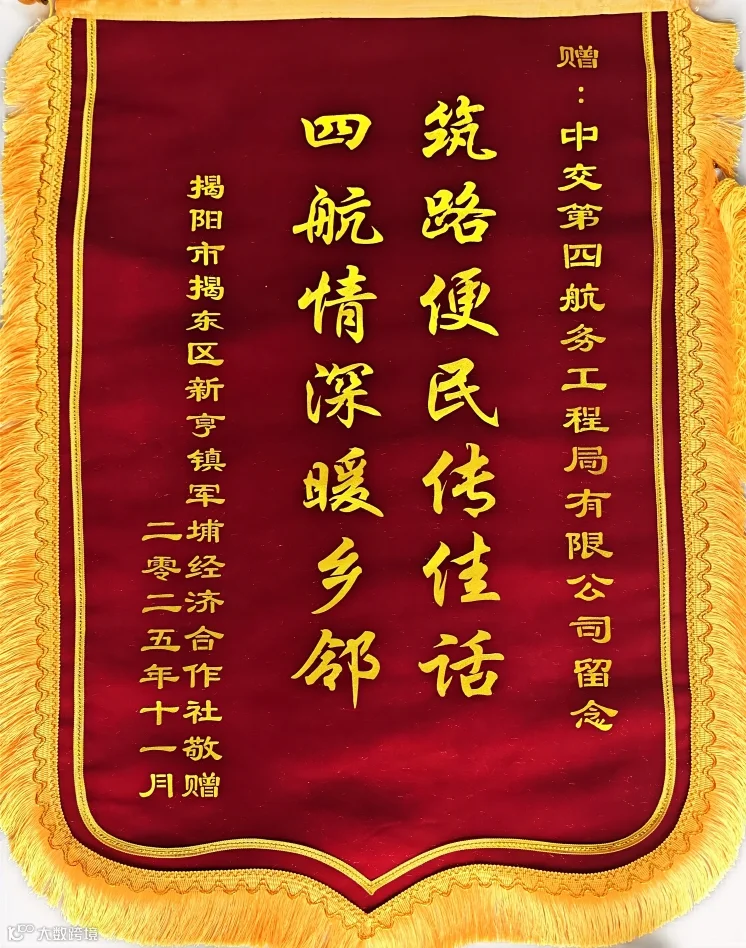 赠：中交第四航务工程局有限公司留念
筑路便民传佳话
四航情深暖乡邻
揭阳市揭东区新亨镇军埔经济合作社敬赠
二零二五年十一月
大数跨境